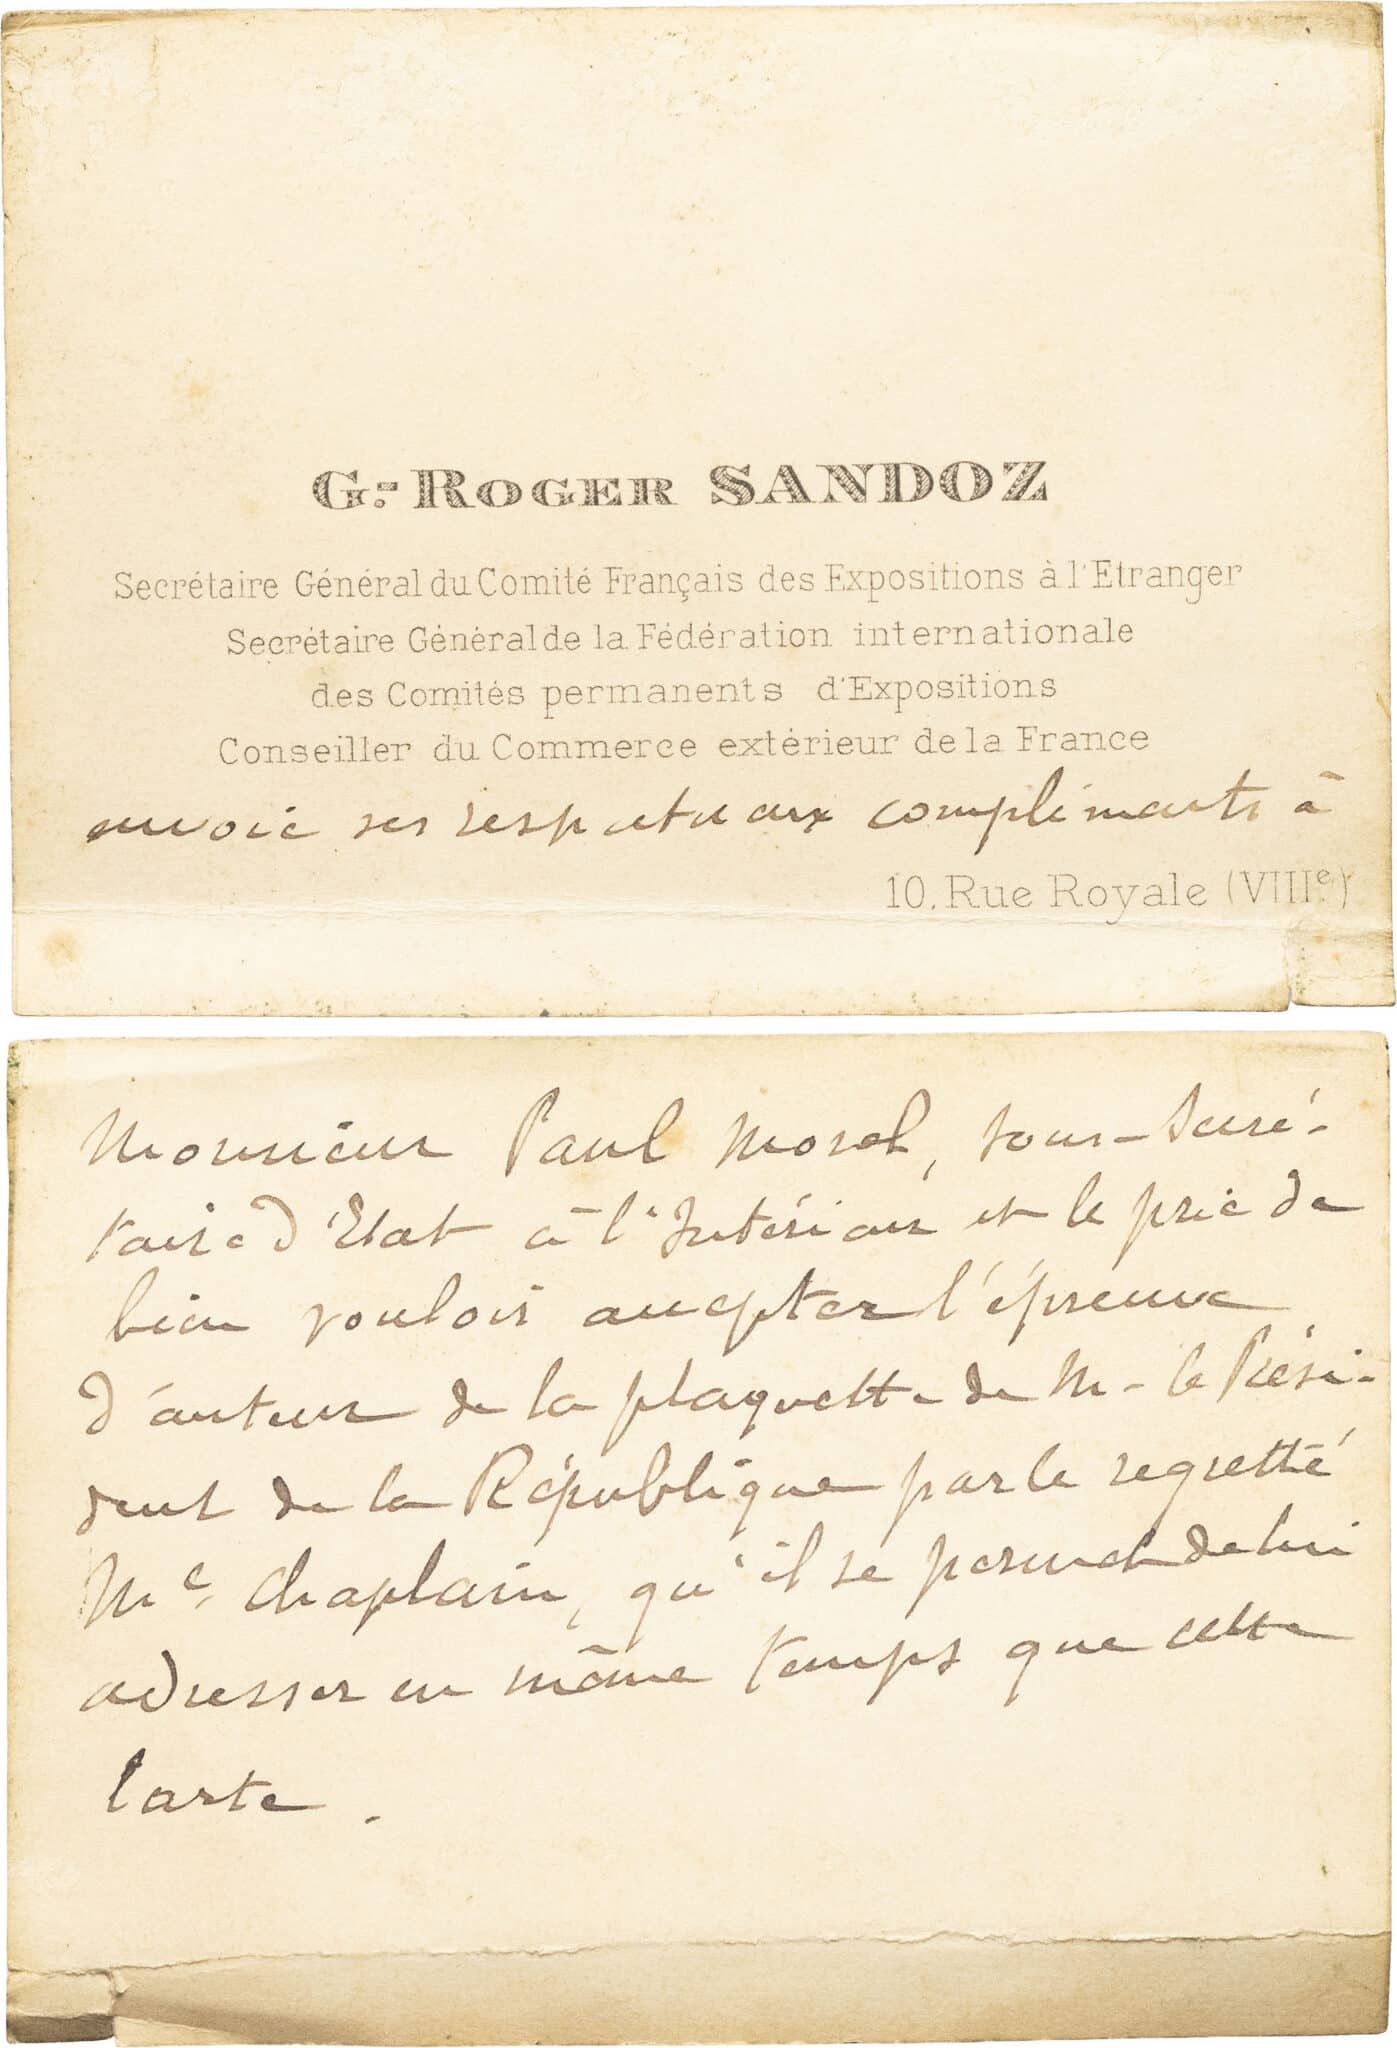 G.-Roger SANDOZ
Secrétaire Général du Comité Français des Expositions à l'Etranger
Secrétaire Général de la Fédération internationale
des Comités permanents d'Expositions
Conseiller du Commerce extérieur de la France
envoie ses respectueux compliments à
10, Rue Royale (VIIIe)
Monsieur Paul Morel, sous-Secré-
taire d'Etat à l'Intérieur et le prie de
bien vouloir accepter l'épreuve
d'auteur de la plaquette de M. le Prési-
dent de la République par le regretté
Me. Chaplain, qu'il se permet de lui
adresser en même temps que cette
Carte.